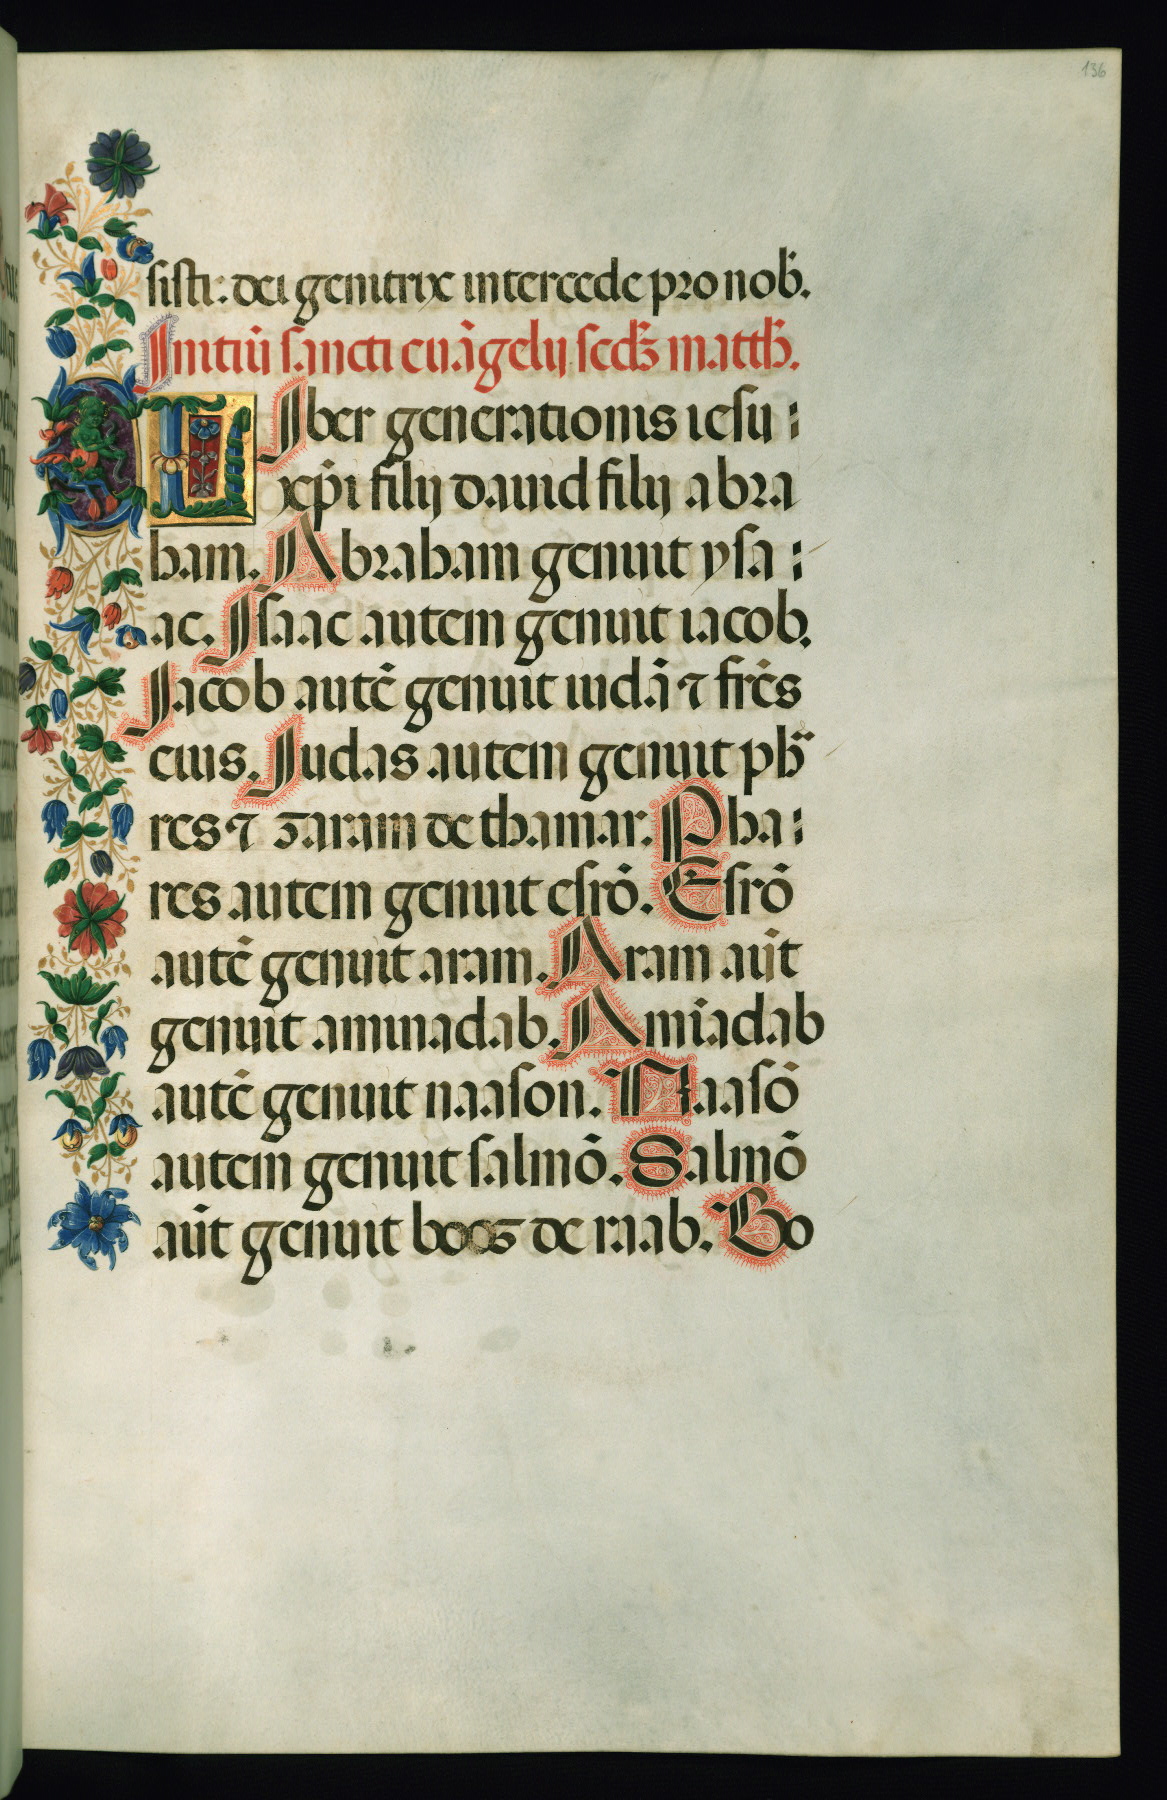 136
sisti: dei genitrix intercede pro nob̄.
Initiū sancti euāgelij scd̄ꝫ matth̄.
LIber generationis iesu:
xp̄i filij dauid filij abra
ham. Abraham genuit ysa:
ac. Isaac autem genuit iacob.
Jacob autē genuit iudā ⁊ frēs
eius. Judas autem genuit pha
res ⁊ zaram de thamar. Pha:
res autem genuit esrō. Esrō
autē genuit aram. Aram aūt
genuit aminadab. Amīadab
autē genuit naason. Naasō
autem genuit salmō. Salmō
aūt genuit booz de raab. Bo